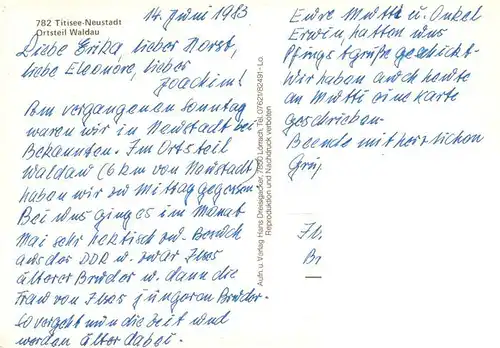 782 Titisee-Neustadt
Ortsteil Waldau
14. Juni 1983
Liebe Erika, lieber Horst,
liebe Eleonore, lieber
Joachim!
Am vergangenen Sonntag
waren wir in Neustadt bei
Bekannten. Im Ortsteil
Waldau (6 km von Neustadt)
haben wir zu Mittag gegessen.
Bei uns ging es im Monat
Mai sehr hektisch zu. Besuch
aus der DDR u. zwar Ilses
älterer Bruder u. dann die
Frau von Ilses jüngeren Bruder.
So vergeht nun die Zeit und
werden älter dabei.
Eure Mutti u. Onkel
Erwin, hatten uns
Pfingstgrüße geschickt.
Wir haben auch heute
an Mutti eine Karte
geschrieben.
Beende mit herzlichen
Grüß
Aufn. u. Verlag Hans Dreisigacker, 7850 Lörrach, Tel. 07621/82491 - Lo.
Reproduktion und Nachdruck verboten